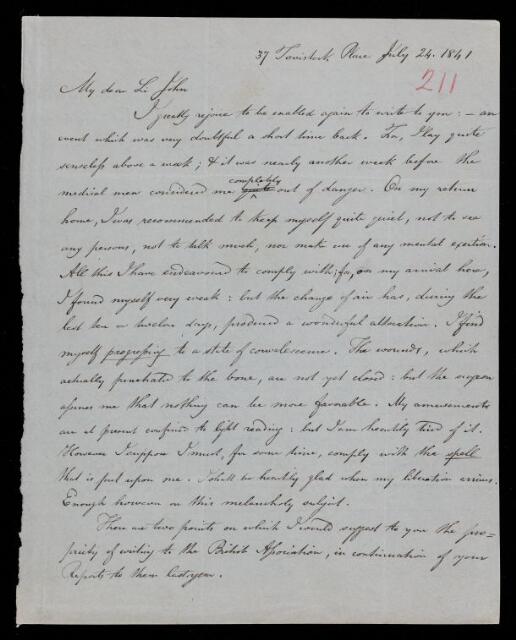 37 Tavistock Place July 24. 1841
211
My dear Sir John
I greatly rejoice to be enabled again to write to you: – an
event which was very doubtful a short time back. For, I lay quite
senseless above a week; & it was nearly another week before the
completely
medical men considered me quite out of danger. On my return
home, I was recommended to keep myself quite quiet, not to see
any persons, not to talk much, nor make use of any mental exertion.
All this I have endeavoured to comply with; for, on my arrival here,
I found myself very weak: but the change of air has, during the
last ten or twelve days, produced a wonderful alteration. I find
myself progressing to a state of convalescence. The wounds, which
actually penetrated to the bone, are not yet closed: but the surgeon
assures me that nothing can be more favorable. My amusements
are at present confined to light reading: but I am heartily tired of it.
However I suppose I must, for some time, comply with the spell
that is put upon me. I shall be heartily glad when my liberation arrives.
Enough however on this melancholy subject.
There are two points on which I would suggest to you the pro=
priety of writing to the British Association, in continuation of your
Reports to them last year.